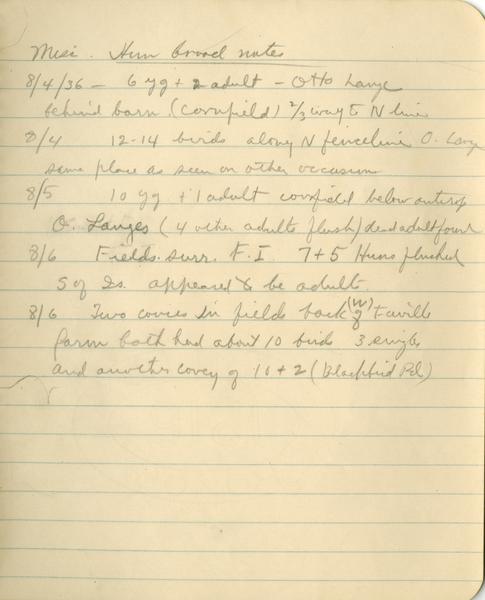 Misc. Hun brood notes
8/4/36 - 6 yg + 2 adult - Otto Lange
behind barn (cornfield) 2/3 way to N line
8/4 12-14 birds along N fenceline O. Lange
same place as seen on other occasion
8/5 10 yg + 1 adult cornfield below
O. Langes (4 other adults flush) dead adult found
8/6 Fields surr. F. I 7+5 Huns flushed
5 of appeared to be adults.
8/6 Two covies in fields back (W) of Faville
farm both had about 10 birds 3 singles
and another covey of 10+2 (Blackbird Rd.)